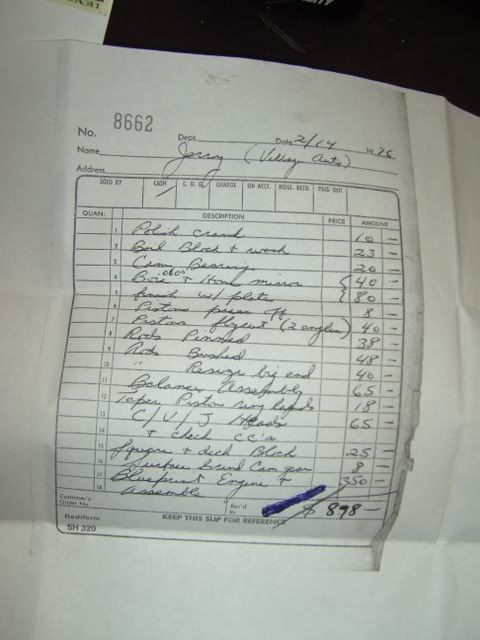 No. 8662
Dept. Date 2/14 1976
Name Jerry (Village Auto)
Address
SOLD BY CASH C. O. D. CHARGE ON ACCT. MDSE. RETD. PAID OUT
QUAN. DESCRIPTION PRICE AMOUNT
1 Polish crank 10 —
2 Boil Block & wash 23 —
3 Cam Bearing 20 —
4 Bore .060" & Hone mirror 40 —
5 finish w/ plate 80 —
6 Pistons press off 8 —
7 Pistons flycut (2 angles) 40 —
8 Rods Pinned 38 —
9 Rods Bushed 48 —
10 " Resize big end 40 —
11 Balance Assembly 65 —
12 Taper Piston ring lands 18 —
13 C/V/J Heads 65 —
14 & check cc's
15 Square & deck Block 25 —
16 Surface Grind Cam gear 8 —
17 Blueprint Engine & 350 —
18 Assemble
Customer's Order No. Rec'd By $ 898 —
Rediform KEEP THIS SLIP FOR REFERENCE
5H 320